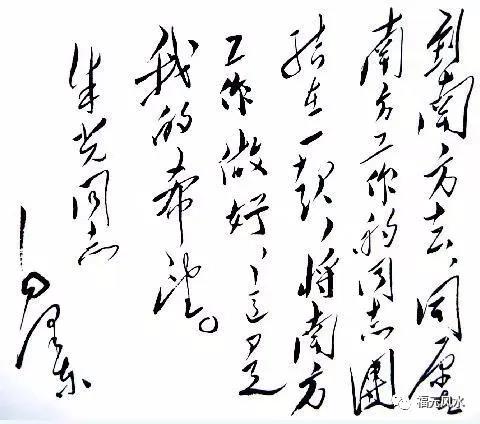 到南方去，同原在
南方工作的同志团
结在一起，将南方
工作做好，这是
我的希望。
朱光同志
毛泽东
福元风水